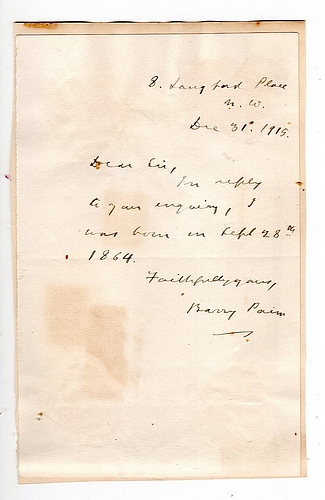 8. Langford Place
N. W.
Dec 31st. 1915.
Dear Sir,
In reply
to your enquiry, I
was born on Sept 28th
1864.
Faithfully yours,
Barry Pain